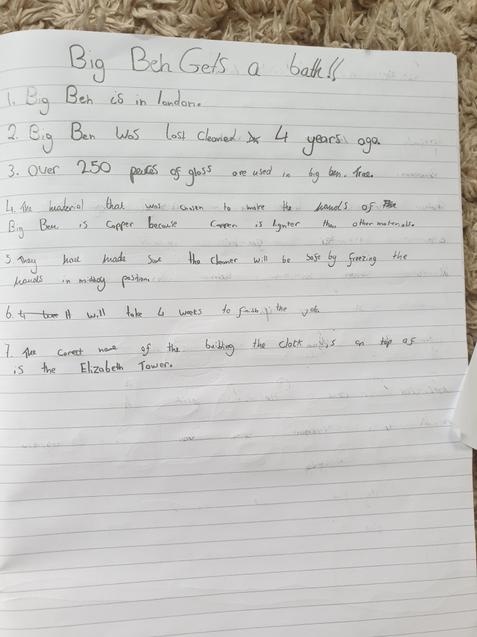 Big Ben Gets a bath!!
1. Big Ben is in london.
2. Big Ben was last cleaned 4 years ago.
3. Over 250 peices of glass are used in big ben. True.
4. The material that was chosen to make the hands of
Big Ben is Copper because Copper is lighter than other materials.
5. They have made sure the cleaner will be safe by freezing the
hands in midday position.
6. It will take 4 weeks to finish the job.
7. The correct name of the building the clock is on top of
is the Elizabeth Tower.